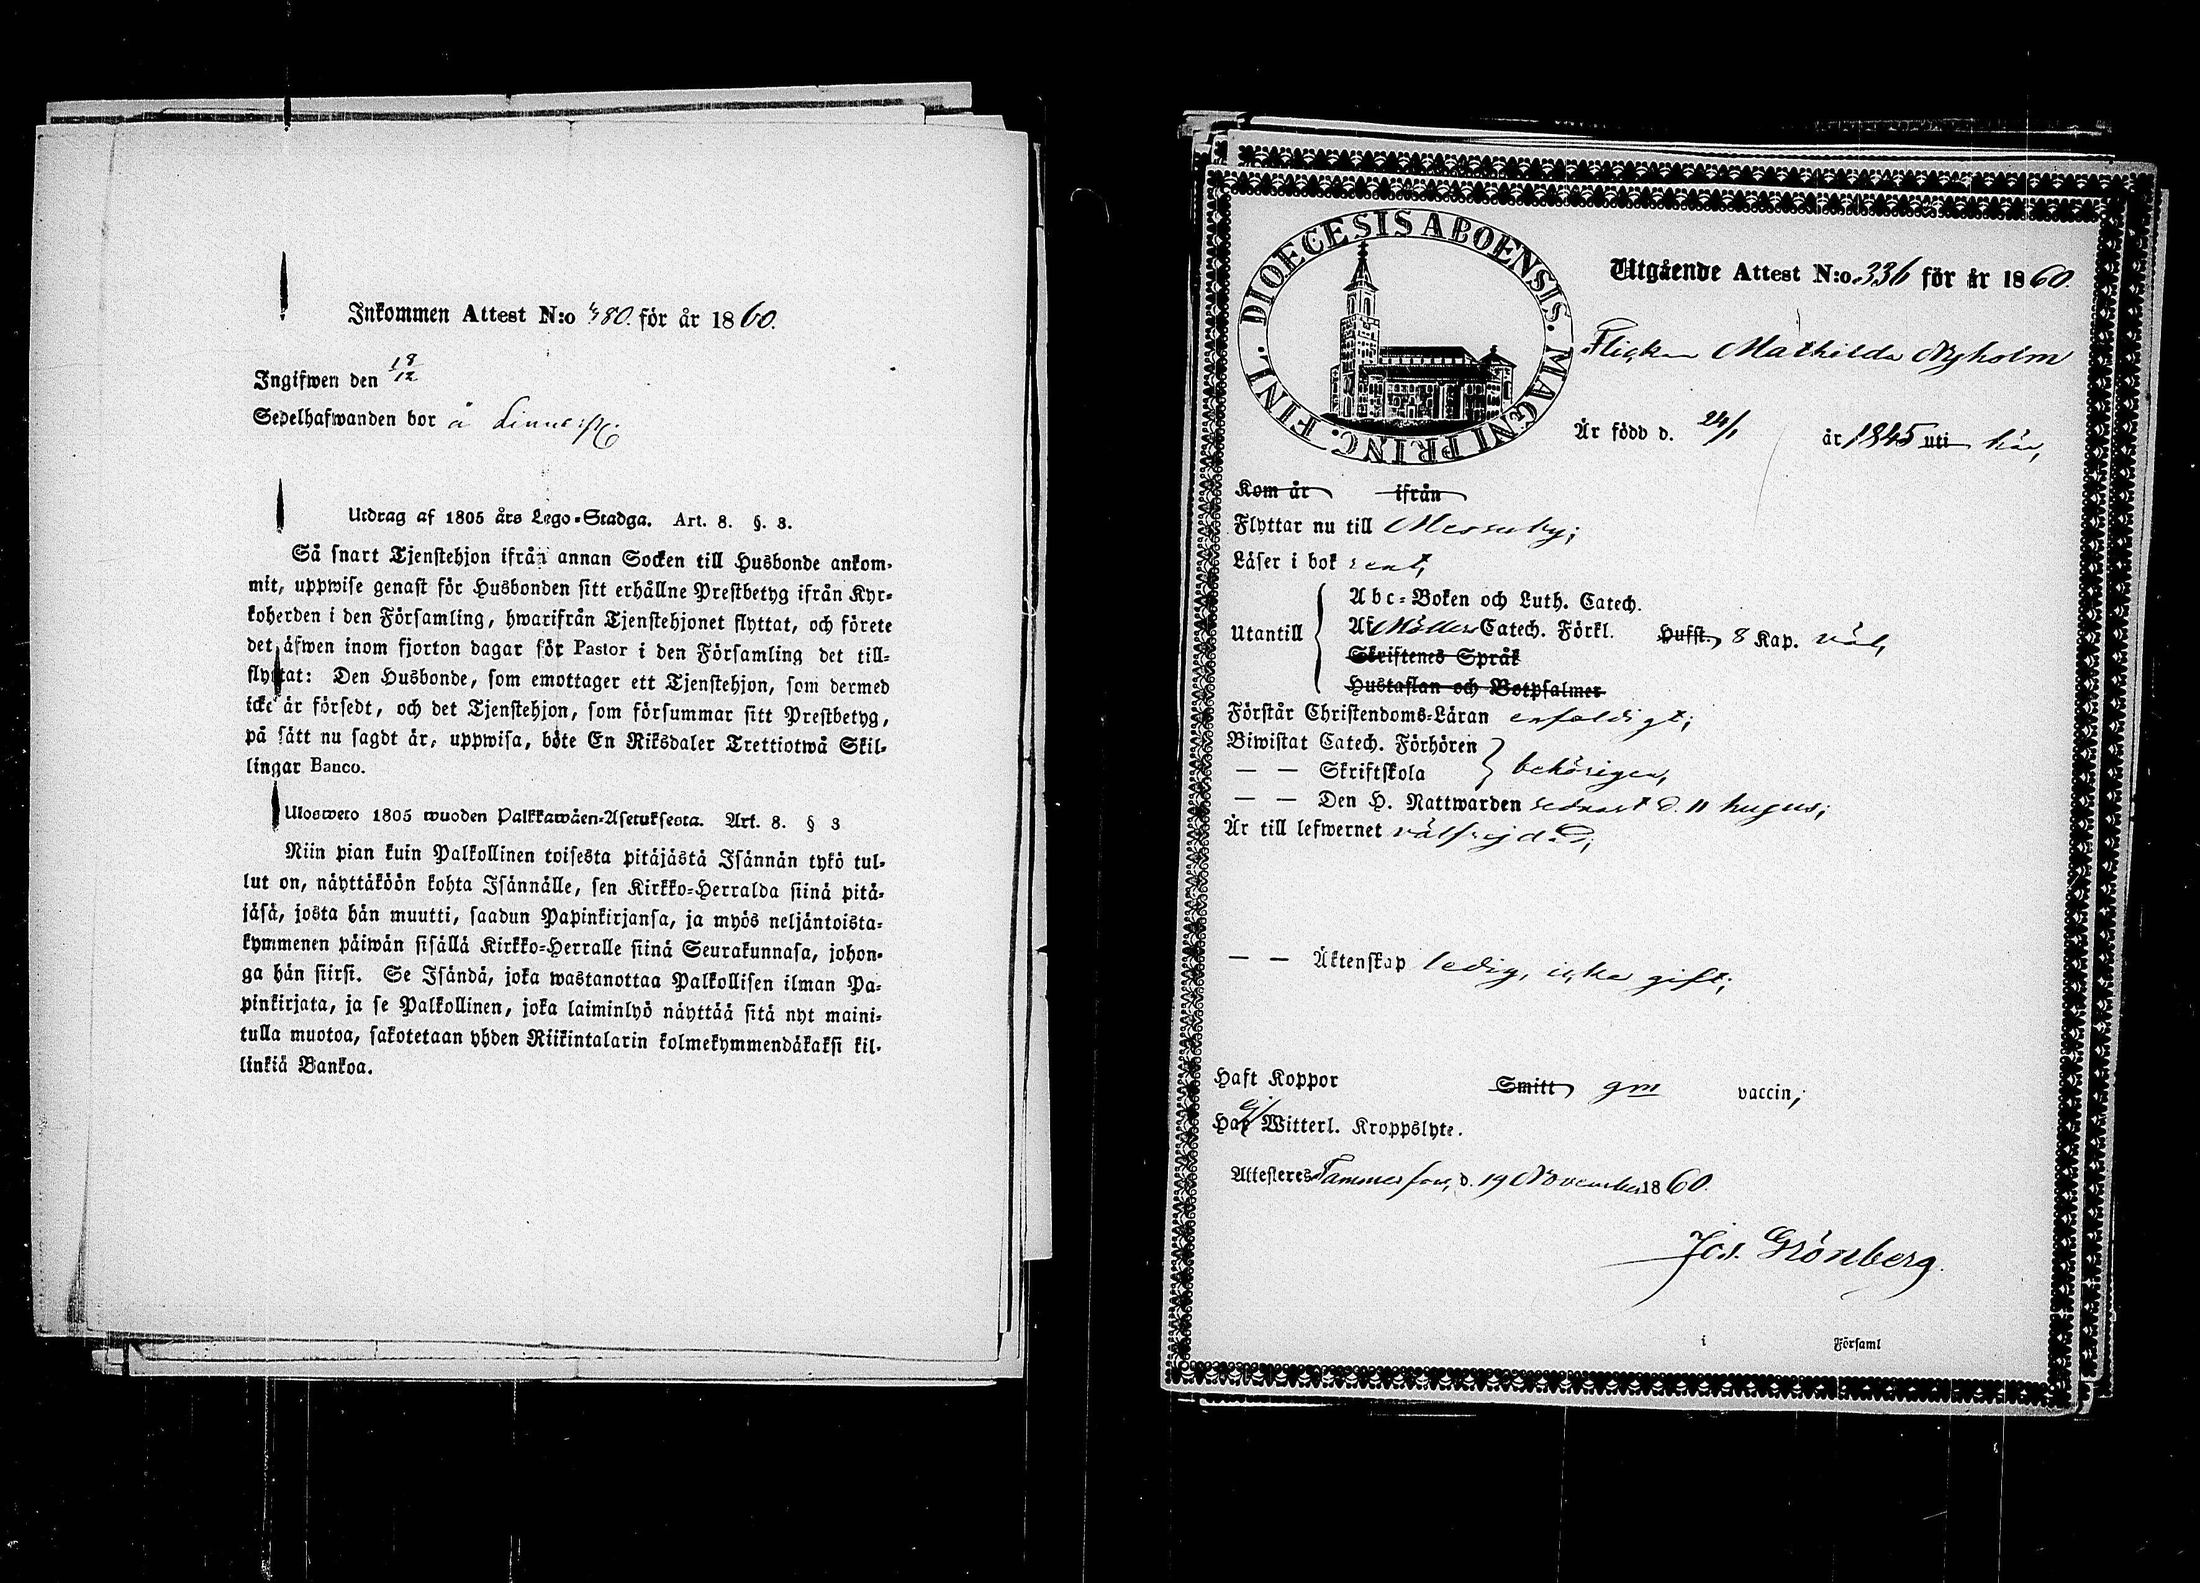 Inkommen Attest N:o 480. för år 1860.
Ingifwen den 18/12
Sedelhafwanden bor å
Utdrag af 1805 års Lego-Stadga. Art. 8. §. 3.
Så snart Tjenstehjon ifrån annan Socken till Husbonde ankom-
mit, uppwise genast för Husbonden sitt erhållne Prestbetyg ifrån Kyr-
koherden i den Församling, hwarifrån Tjenstehjonet flyttat, och förete
det äfwen inom fjorton dagar för Pastor i den Församling det till-
flyttat: Den Husbonde, som emottager ett Tjenstehjon, som dermed
icke är försedt, och det Tjenstehjon, som försummar sitt Prestbetyg,
på sätt nu sagdt är, uppwisa, böte En Riksdaler Trettiotwå Skil-
lingar Banco.
Ulosweto 1805 wuoden Palkkawäen-Asetuksesta. Art. 8. § 3
Niin pian kuin Palkollinen toisesta pitäjästä Isännän tykö tul-
lut on, näyttäköön kohta Isännälle, sen Kirkko-Herralda siinä pitä-
jäsä, josta hän muutti, saadun Papinkirjansa, ja myös neljäntoista-
kymmenen päiwän sisällä Kirkko-Herralle siinä Seurakunnasa, johon-
ga hän siirsi. Se Isändä, joka wastanottaa Palkollisen ilman Pa-
pinkirjata, ja se Palkollinen, joka laiminlyö näyttää sitä nyt maini-
tulla muotoa, sakotetaan yhden Riikintalarin kolmekymmendäkaksi kil-
linkiä Bankoa.
DIOECESIS ABOENSIS. MAGNI PRINC. FINL.
Utgående Attest N:o 336 för år 1860.
Flickan Mathilda Nyholm
Är född d. 24/1 år 1845 uti här,
Kom år ifrån
Flyttar nu till Messuby;
Läser i bok rent,
Utantill
Abc-Boken och Luth. Catech.
Af Möllers Catech. Förkl. Hufst. 8 Kap. väl,
Skriftenes Språk
Hustaflan och Botpsalmer
Förstår Christendoms-Läran enfaldigt;
Biwistat Catech. Förhören
— — Skriftskola behörigen,
— — Den H. Nattwarden sednast d. 11 hujus;
Är till lefwernet välfrejdad;
— — Äktenskap ledig, icke gift;
Haft Koppor Smitt gm vaccin,
Har ej Witterl. Kroppslyte.
Attesteres Tammerfors, d. 19 November 1860.
Jos. Grönberg.
i Församl